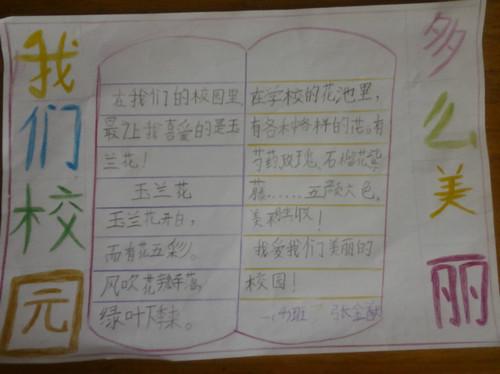 我们校元
多么美丽
在我们的校园里,
最让我喜爱的是玉
兰花!
玉兰花
玉兰花开白,
而有花五彩。
风吹花落,
绿叶下来。
在学校的花池里,
有各种各样的花。有
芍药,玫瑰、石榴花、紫
藤……五颜六色,
美不胜收!
我爱我们美丽的
校园!
班 张金